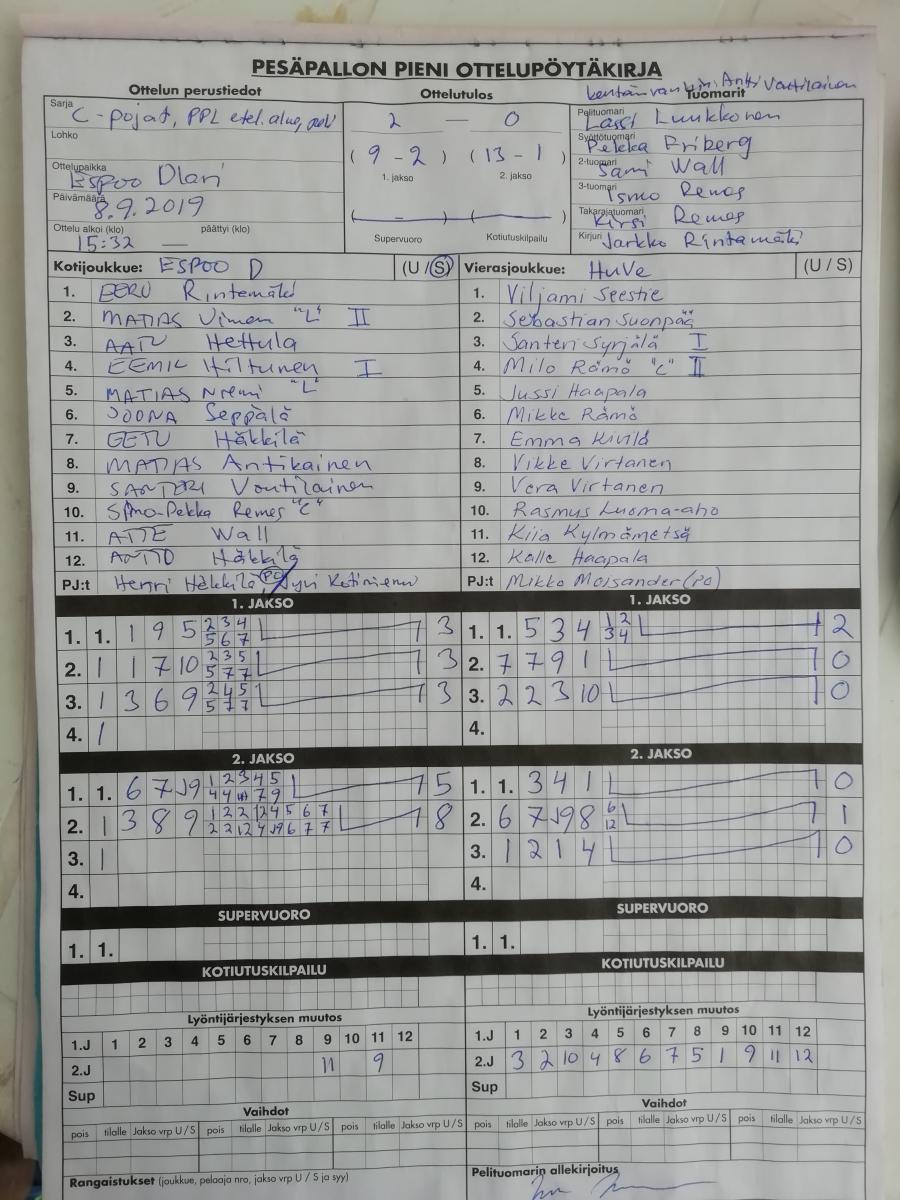 PESÄPALLON PIENI OTTELUPÖYTÄKIRJA
Ottelun perustiedot
Ottelutulos
Tuomarit
Sarja C-pojat, PPL etel.alue,
Lohko
Ottelupaikka Espoo Olari
Päivämäärä 8.9.2019
Ottelu alkoi (klo) päättyi (klo)
15:32 —
2 — 0
(9-2) (13-1)
1. jakso 2. jakso
( - ) ( )
Supervuoro Kotiutuskilpailu
Pelituomari Lassi Luukkonen
Syöttötuomari Pekka Friberg
2-tuomari Sami Wall
3-tuomari Ismo Remes
Takarajatuomari Kirsi Remes
Kirjuri Jarkko Rintamäki
Kotijoukkue: ESPOO D (U / S)
1. EERO Rintamäki
2. MATIAS "L" II
3. AATU Hettula
4. EEMIL Hiltunen I
5. MATIAS Niemi "L"
6. JOONA Seppälä
7. EETU Häkkilä
8. MATIAS Antikainen
9. SANTERI Voutilainen
10. Simo-Pekka Remes "C"
11. ATTE Wall
12. ANTTO Häkkilä
PJ:t Henri Häkkilä (PC) Jyri Kotiniemi
Vierasjoukkue: HuVe (U / S)
1. Viljami Seestie
2. Sebastian Suonpää
3. Santeri Syrjälä I
4. Milo Rämö "C" II
5. Jussi Haapala
6. Mikke Rämö
7. Emma Kivilä
8. Vikke Virtanen
9. Vera Virtanen
10. Rasmus Luoma-aho
11. Kiia Kylmämetsä
12. Kalle Haapala
PJ:t Mikko Moisander (PC)
1. JAKSO
1. 1. 1 9 5 2 3 4 3
5 6 7
2. 1 1 7 10 2 3 5 3
5 7 7
3. 1 3 6 9 2 4 5 3
5 7 7
4. 1
1. JAKSO
1. 1. 5 3 4 1 2 2
3 4
2. 7 7 9 1 0
3. 2 2 3 10 0
4.
2. JAKSO
1. 1. 6 7 J9 1 2 3 4 5 5
4 4 7 9
2. 1 3 8 9 1 2 2 12 4 5 6 7 8
2 2 12 4 J9 6 7 7
3. 1
4.
2. JAKSO
1. 1. 3 4 1 0
2. 6 7 J9 8 6 1
12
3. 1 2 1 4 0
4.
SUPERVUORO
1. 1.
SUPERVUORO
1. 1.
KOTIUTUSKILPAILU
KOTIUTUSKILPAILU
Lyöntijärjestyksen muutos
1.J 1 2 3 4 5 6 7 8 9 10 11 12
2.J 11 9
Sup
Lyöntijärjestyksen muutos
1.J 1 2 3 4 5 6 7 8 9 10 11 12
2.J 3 2 10 4 8 6 7 5 1 9 11 12
Sup
Vaihdot
pois tilalle Jakso vrp U/S pois tilalle Jakso vrp U/S pois tilalle Jakso vrp U/S
Vaihdot
pois tilalle Jakso vrp U/S pois tilalle Jakso vrp U/S pois tilalle Jakso vrp U/S
Rangaistukset (joukkue, pelaaja nro, jakso vrp U / S ja syy)
Pelituomarin allekirjoitus